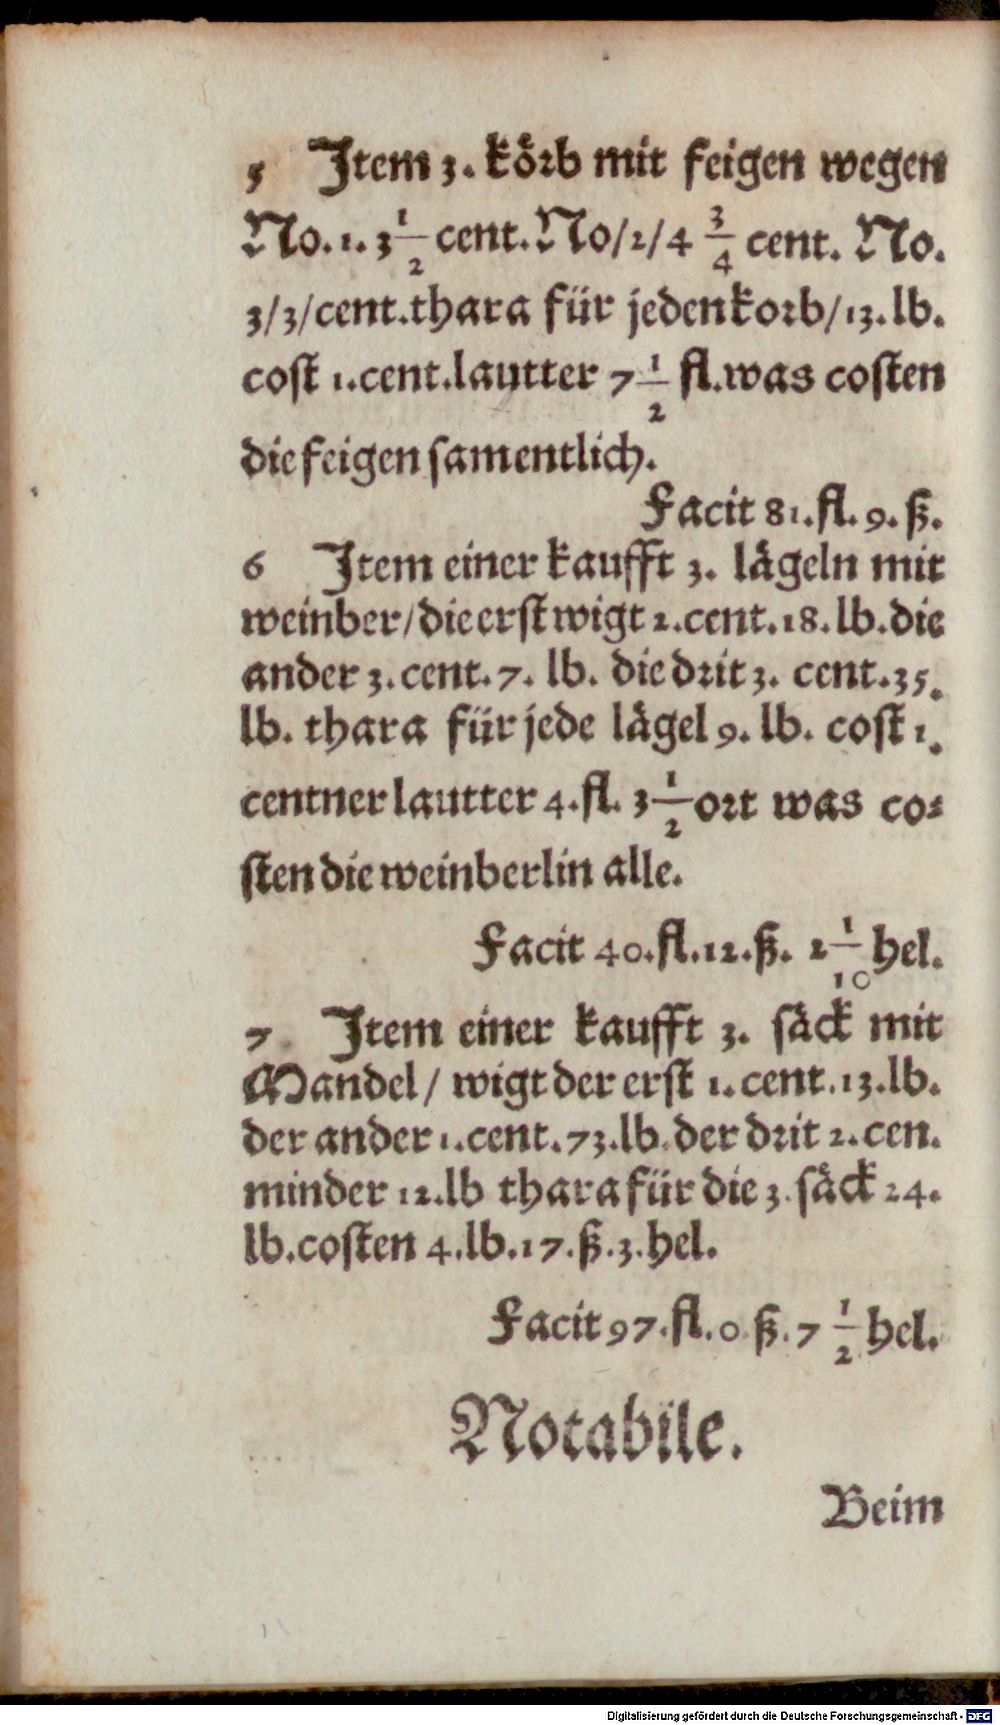 5 Item 3. körb mit feigen wegen
No. 1. 3 1/2 cent. No/2/4 3/4 cent. No.
3/3/cent. thara für jeden korb/13. lb.
cost 1. cent. lautter 7 1/2 fl. was costen
die feigen samentlich.
Facit 81. fl. 9. ß.
6 Item einer kaufft 3. lägeln mit
weinber/die erst wigt 2. cent. 18. lb. die
ander 3. cent. 7. lb. die drit 3. cent. 35.
lb. thara für jede lägel 9. lb. cost 1.
centner lautter 4. fl. 3 1/2 ort was co⸗
sten die weinberlin alle.
Facit 40. fl. 12. ß. 2 1/10 hel.
7 Item einer kaufft 3. säck mit
Mandel/ wigt der erst 1. cent. 13. lb.
der ander 1. cent. 73. lb. der drit 2. cen.
minder 12. lb thara für die 3. säck 24.
lb. costen 4. lb. 17. ß. 3. hel.
Facit 97. fl. 0 ß. 7 1/2 hel.
Notabile.
Beim
Digitalisierung gefördert durch die Deutsche Forschungsgemeinschaft - DFG